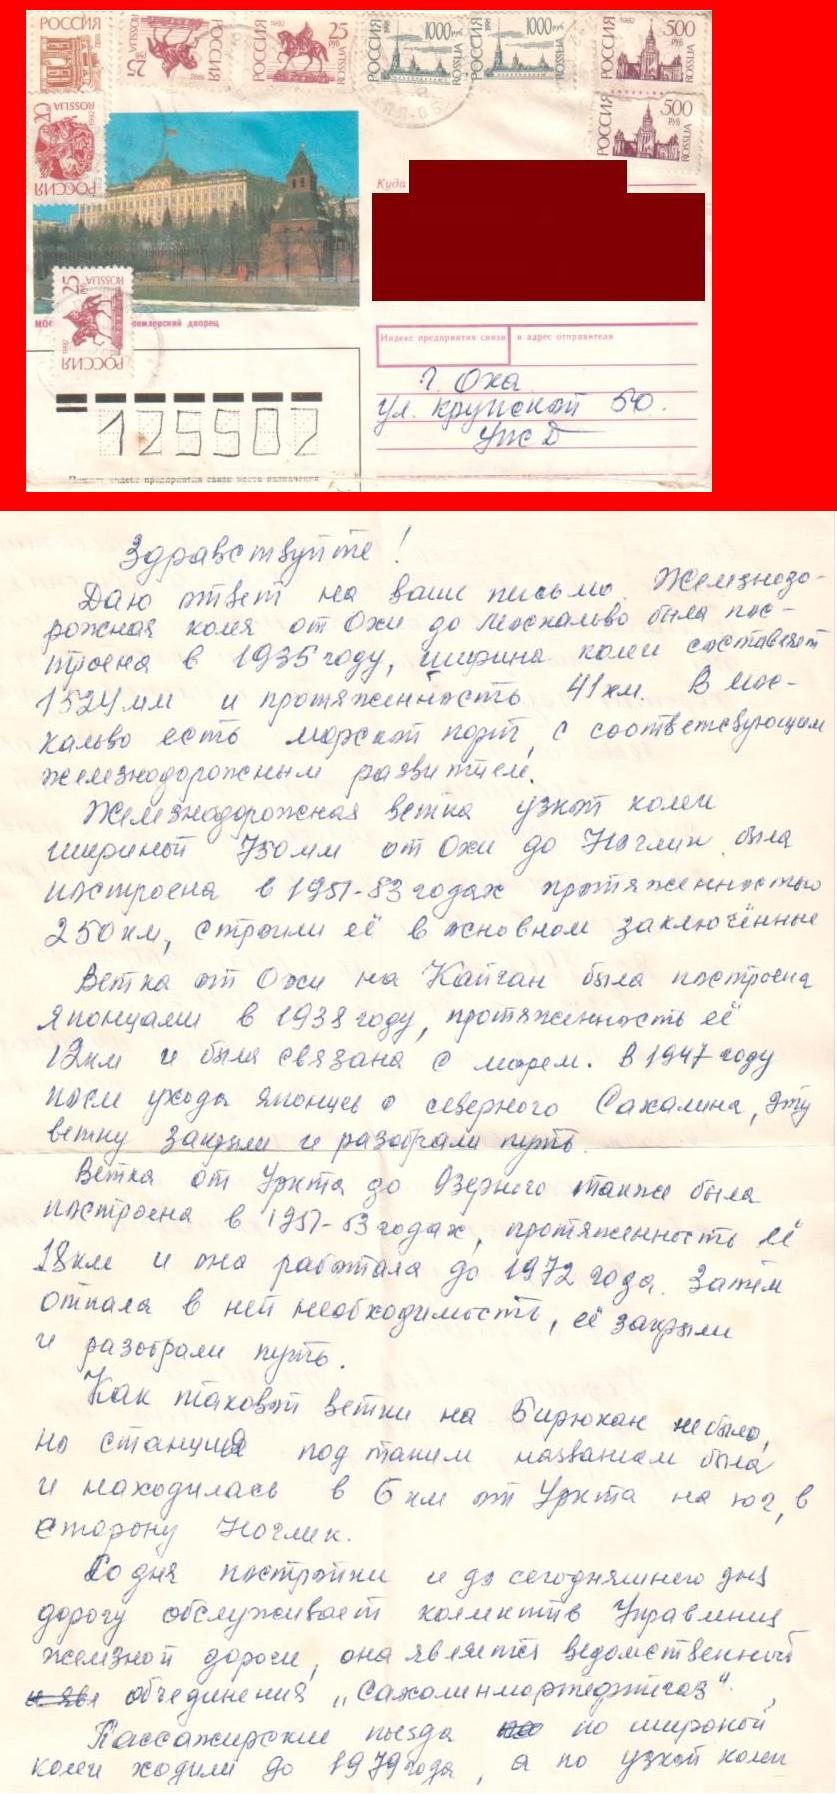 РОССИЯ 1992
РОССИЯ 25 РУБ ROSSIJA 1992
РОССИЯ 1992 25 РУБ ROSSIJA
РОССИЯ 1995 1000 РУБ ROSSIJA
РОССИЯ 1995 1000 РУБ ROSSIJA
РОССИЯ 1992 500 РУБ ROSSIJA
РОССИЯ 500 РУБ ROSSIJA
РОССИЯ 20 ROSSIJA 1992
РОССИЯ 25 ROSSIJA 1992
Куда
дворец
Индекс предприятия связи и адрес отправителя
г. Оха
ул. Крупской 50.
УЖД
125502
индекс предприятия связи места назначения
Здравствуйте!
Даю ответ на ваше письмо. Железнодо-
рожная колея от Охи до Москальво была пос-
троена в 1935 году, ширина колеи составляет
1524 мм и протяженность 41 км. В Мос-
кальво есть морской порт, с соответсвующим
железнодорожным развитием.
Железнодорожная ветка узкой колеи
шириной 750 мм от Охи до Ноглик была
построена в 1951-53 годах протяженностью
250 км, строили её в основном заключённые
Ветка от Охи на Кайган была построена
японцами в 1938 году, протяженность её
12 км и была связана с морем. В 1947 году
после ухода японцев с северного Сахалина, эту
ветку закрыли и разобрали путь.
Ветка от Уркта до Озерного также была
построена в 1951-53 годах, протяженность её
18 км и она работала до 1972 года. Затем
отпала в ней необходимость, её закрыли
и разобрали путь.
Как таковой ветки на Бирюкан не было,
но станция под таким названием была
и находилась в 6 км от Уркта на юг, в
сторону Ноглик.
Со дня постройки и до сегодняшнего дня
дорогу обслуживает коллектив Управления
железной дороги, она является ведомственной
объединения „Сахалинморнефтегаз".
Пассажирские поезда по широкой
колеи ходили до 1979 года, а по узкой колеи